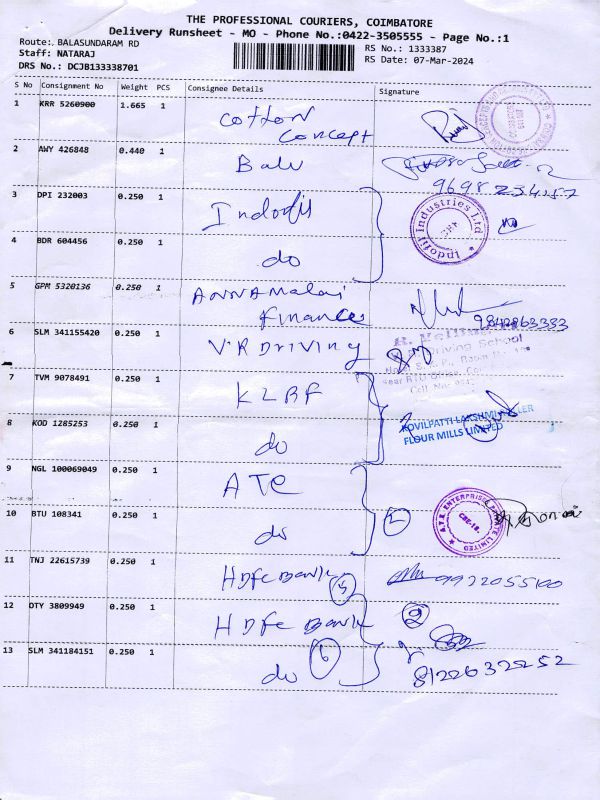 THE PROFESSIONAL COURIERS, COIMBATORE
Delivery Runsheet - MO - Phone No.:0422-3505555 - Page No.:1
Route:. BALASUNDARAM RD
RS No.: 1333387
Staff: NATARAJ
RS Date: 07-Mar-2024
DRS No.: DCJB133338701
S No Consignment No Weight PCS Consignee Details Signature
1 KRR 5260900 1.665 1 Cotton
Concept
2 AWY 426848 0.440 1 Balu
3 DPI 232003 0.250 1 Indofil
Indofil Industries Ltd
4 BDR 604456 0.250 1 do
5 GPM 5320136 0.250 1 Annamalai
Finance 9842863333
6 SLM 341155420 0.250 1 V.R Driving
Driving School
7 TVM 9078491 0.250 1 KLRF
8 KOD 1285253 0.250 1 do
KOVILPATTI LAKSHMI ROLLER
FLOUR MILLS LIMITED
9 NGL 100069049 0.250 1 ATE
10 BTU 108341 0.250 1 do 2
A.T.E. ENTERPRISES PRIVATE LIMITED
11 TNJ 22615739 0.250 1 HDFC Bank
12 OTY 3809949 0.250 1 HDFC Bank 2
13 SLM 341184151 0.250 1 do 6